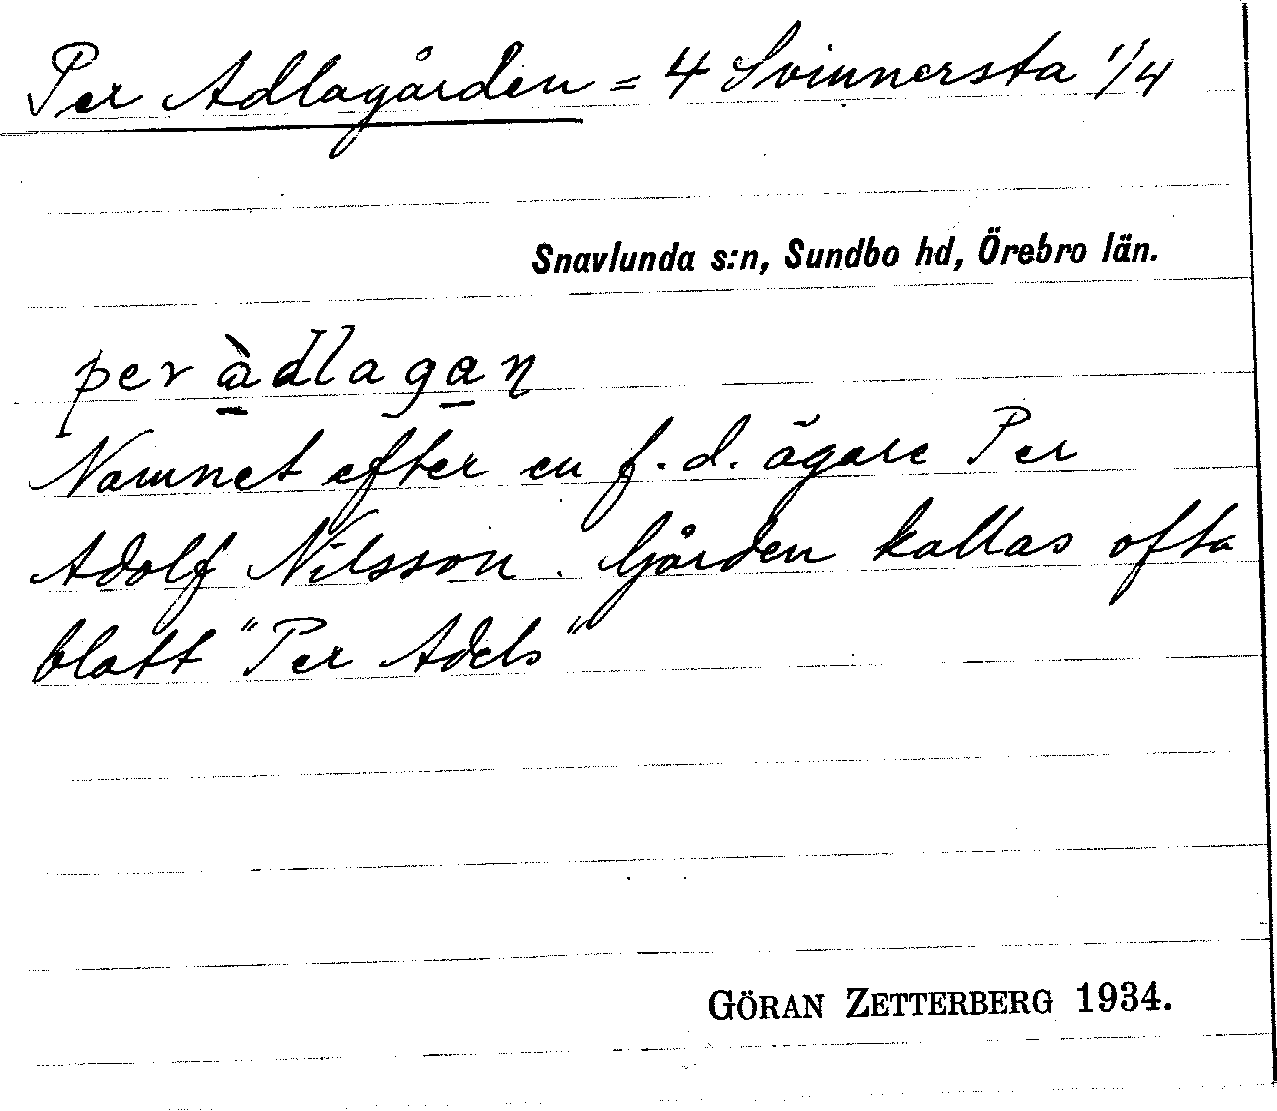 Per Adlagården = 4 Svinnersta 1/4
Snavlunda s:n, Sundbo hd, Örebro län.
per àdlagaṇ
Namnet efter en f.d. ägare Per
Adolf Nilsson. Gården kallas ofta
blott "Per Adels"
GÖRAN ZETTERBERG 1934.